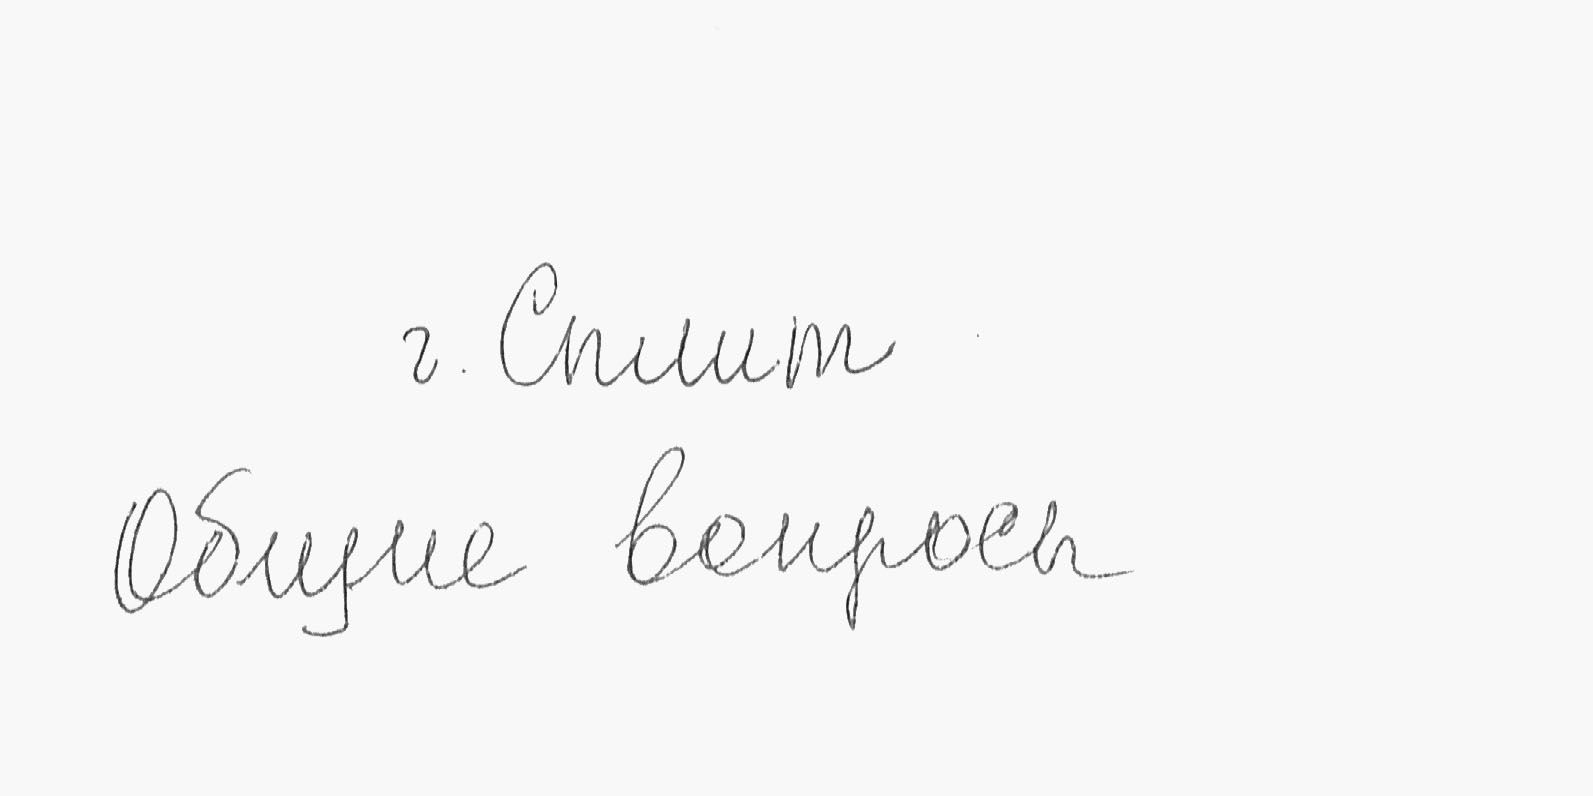 г. Сплит
Общие вопросы